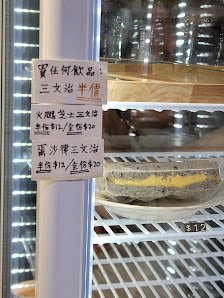 買任何飲品：
三文治 半價
火腿芝士三文治
半價$12/全價$20
蛋沙律三文治
半價$12/全價$20
$12